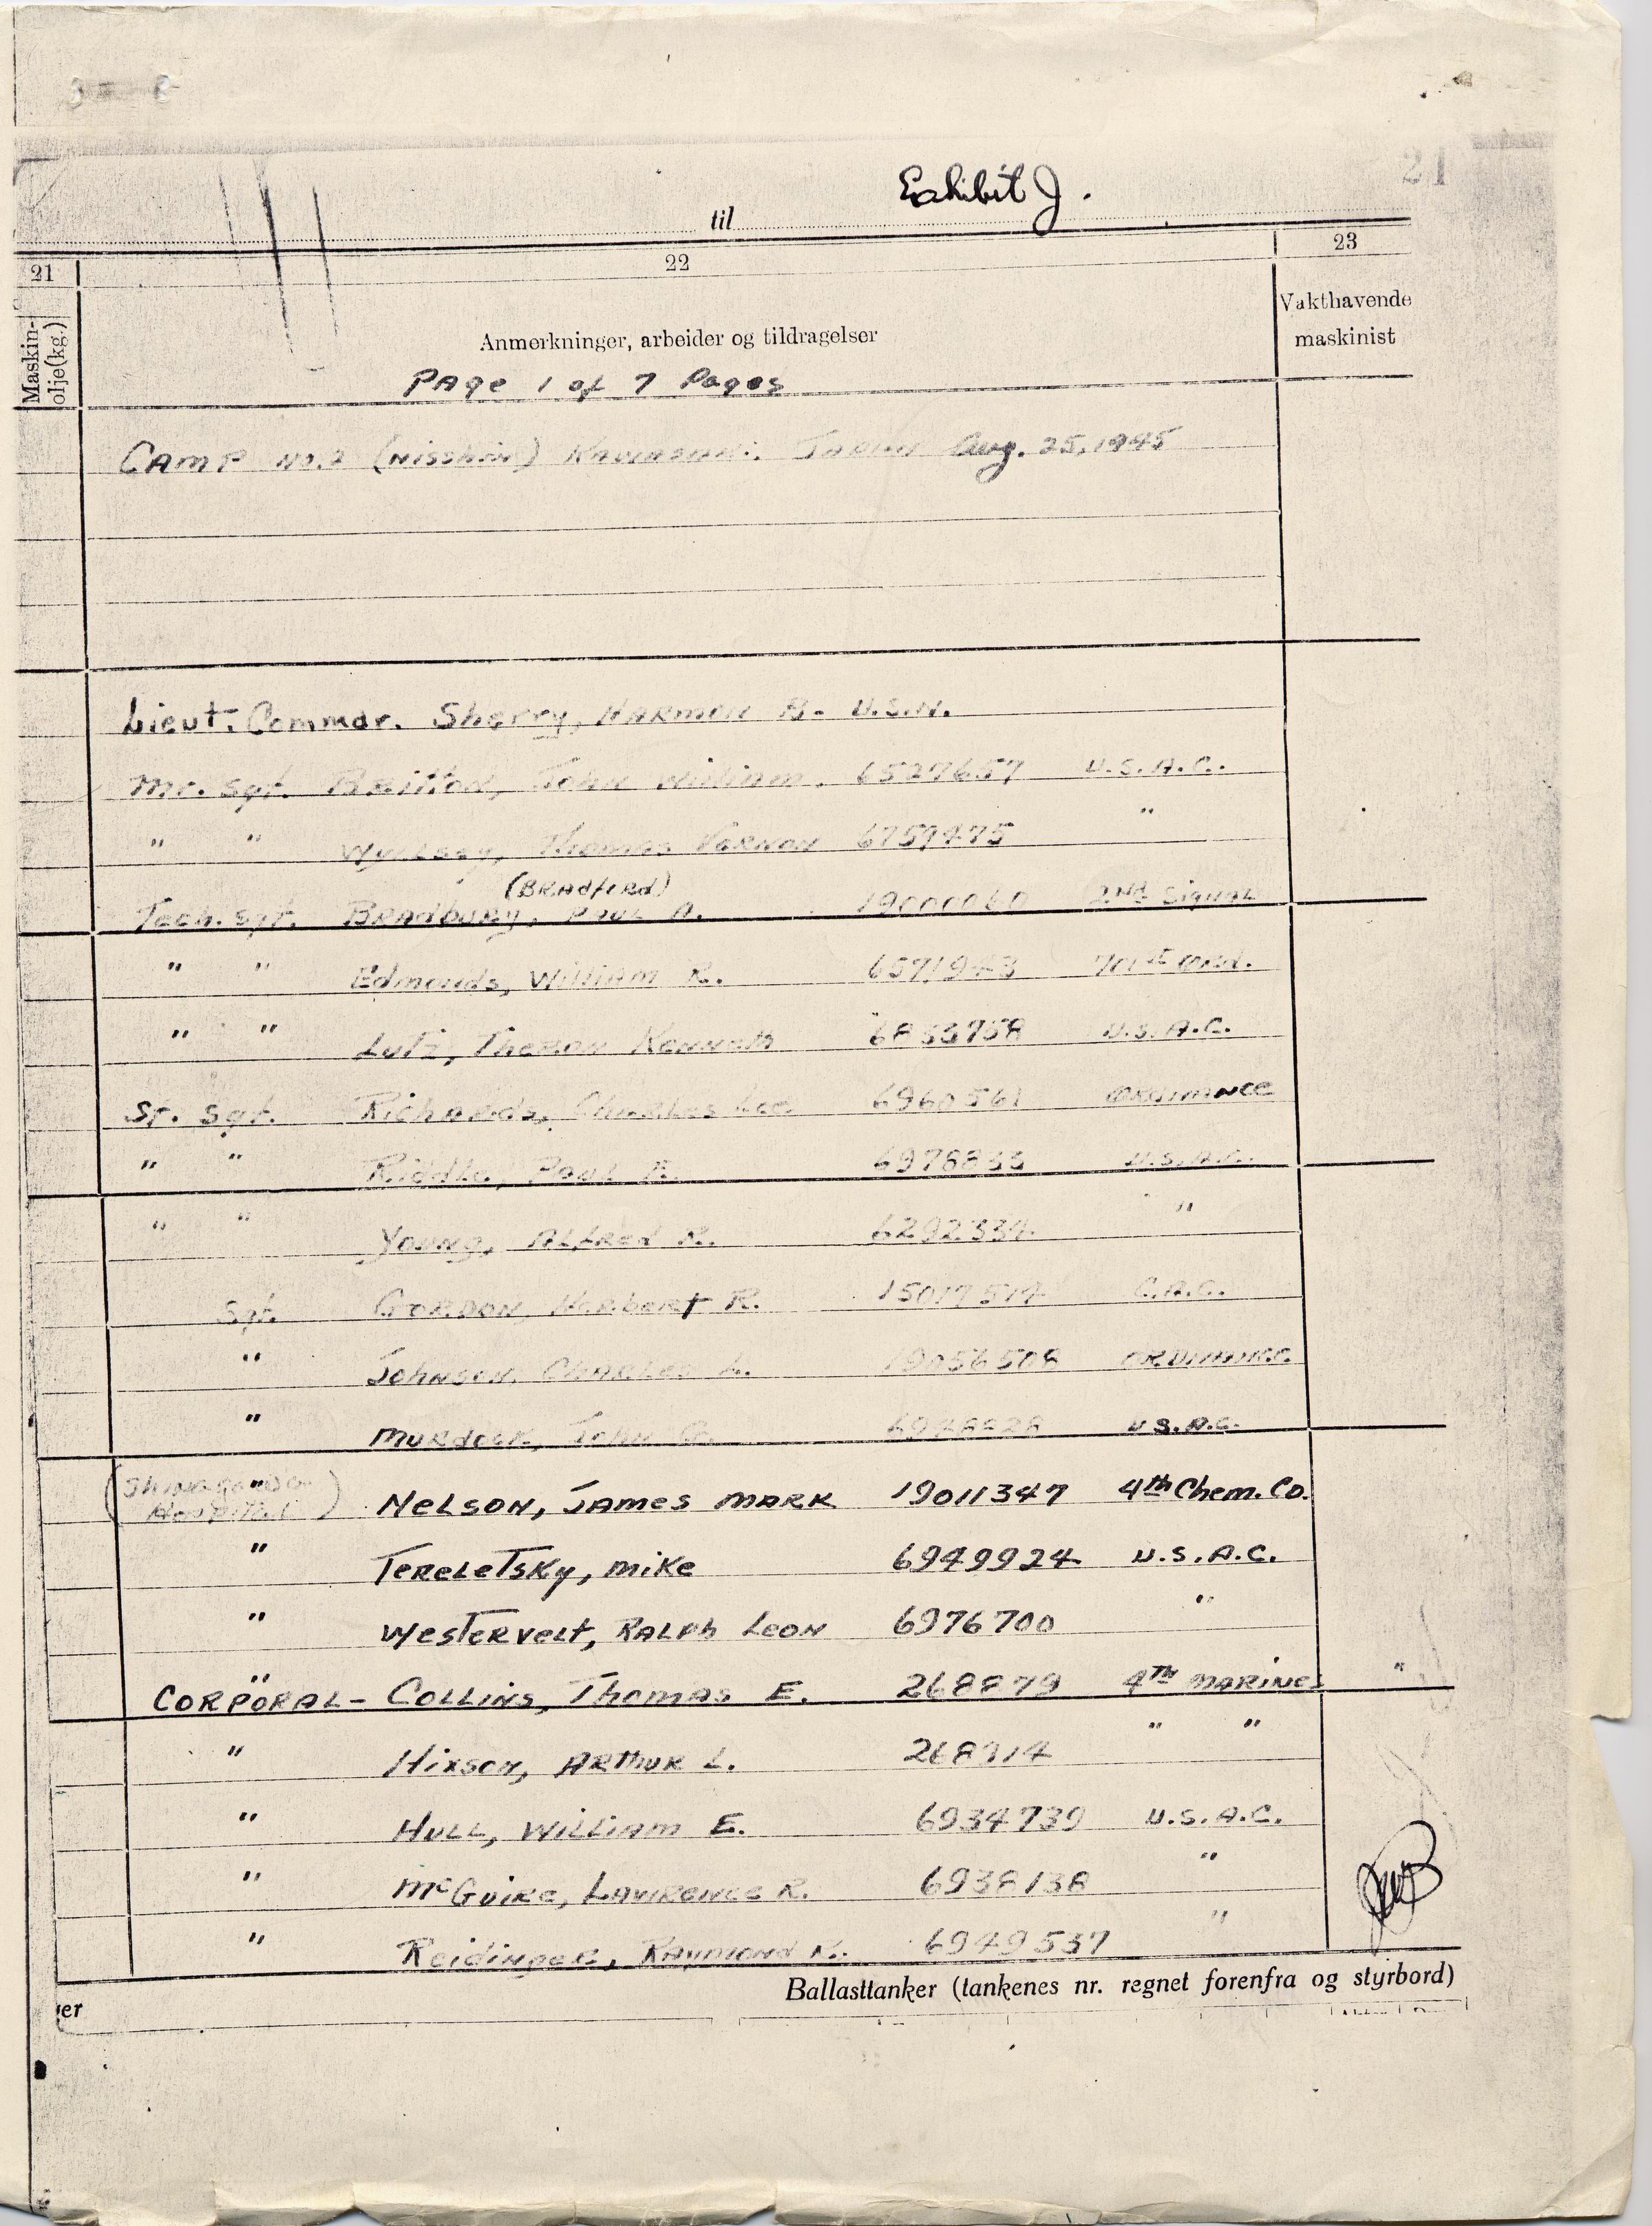 21
Exhibit J.
til
21 22 23
Maskin-olje(kg.)
Anmerkninger, arbeider og tildragelser
Vakthavende maskinist
Page 1 of 7 Pages
Camp No. 2 (Nisshin) Kawasaki. Japan Aug. 25, 1945
Lieut. Commdr. Sherry, Harmon B. U.S.N.
Mr. Sgt. Britton, John William. 6527657 U.S.A.C.
" " Thomas Vernon 6759475 "
(Bradford)
Tech. Sgt. Bradbury, Paul A. 19000060 2nd Signal
" " Edmonds, William R. 6571943 701st Ord.
" " Lutz, Theron Kenneth 6853758 U.S.A.C.
St. Sgt. Richards, Charles Lee 6960561 Ordinance
" " Riddle, Paul E. 6978833 U.S.A.C.
" " Young, Alfred R. 6292334 "
Sgt. Gordon, Herbert R. 15017514 C.A.C.
" Johnson, Charles L. 19056508 Ordinance
" Murdock, John G. U.S.A.C.
(Shinagawa Hospital) " Nelson, James Mark 19011347 4th Chem. Co.
" Tereletsky, Mike 6949924 U.S.A.C.
" Westervelt, Ralph Leon 6976700 "
"
Corporal - Collins, Thomas E. 268879 4th Marines "
" Hixson, Arthur L. 268914 " "
" Hull, William E. 6934739 U.S.A.C.
" McGuire, Lawrence R. 6938138 "
" Reidinger, Raymond K. 6949537 "
Ballasttanker (tankenes nr. regnet forenfra og styrbord)
er